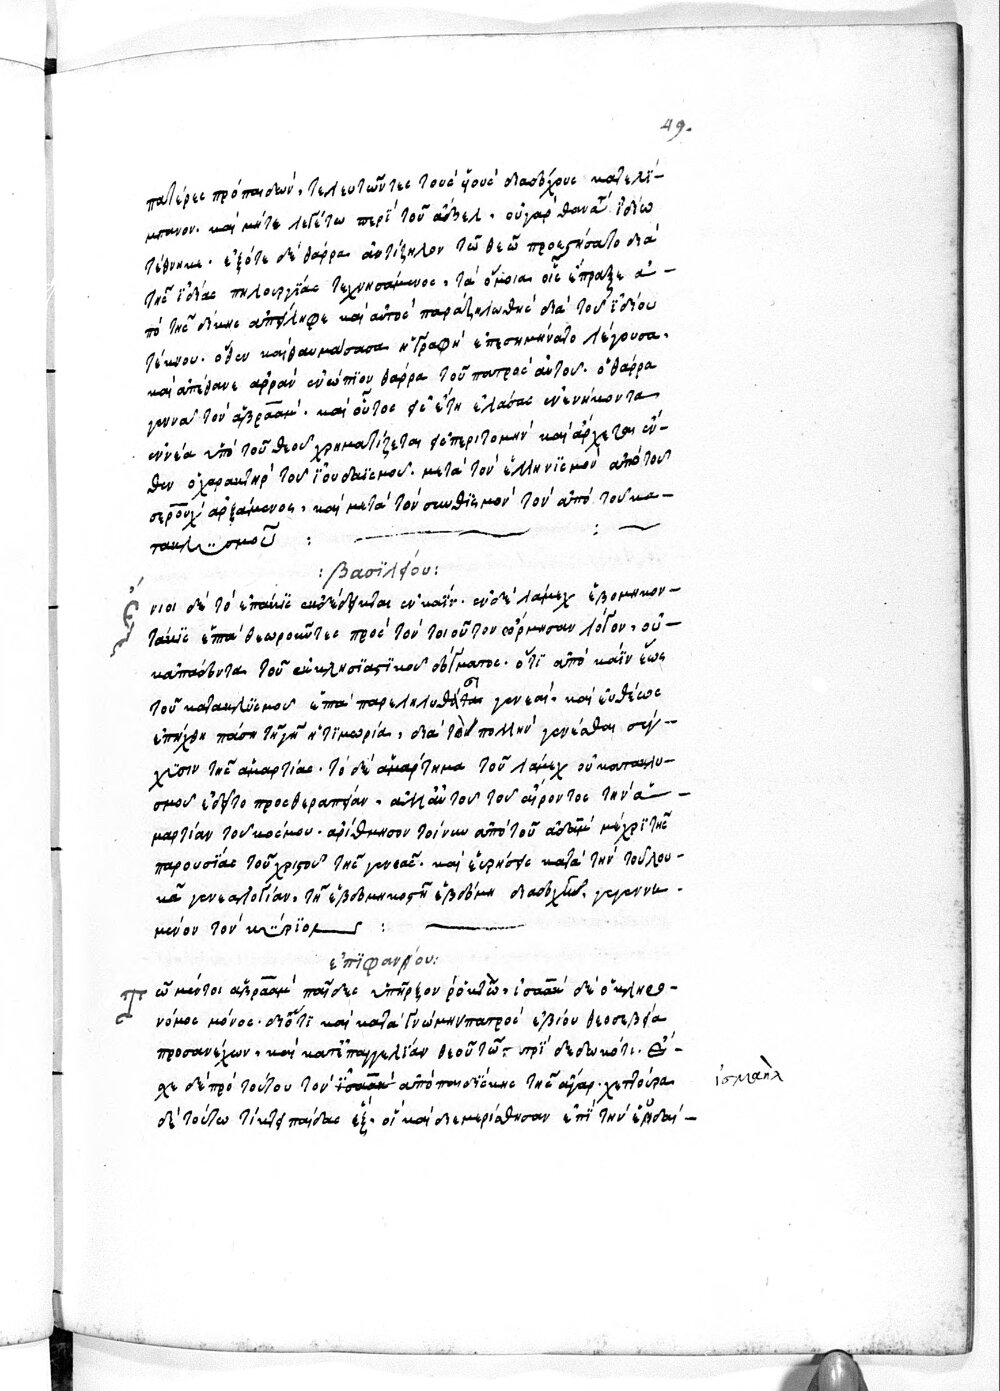 49.
πατέρες πρὸ παίδων, τελευτῶντες τοὺς υἱοὺς διαδόχους κατελί-
μπανον. καὶ μήτε λεγέτω περὶ τοῦ ἄβελ, οὐ γὰρ θανάτω ἰδίω
τέθνηκε. ἐξότε δὲ θάρρα ἀντίζηλον τῶ θεῶ προεστήσατο διὰ
τῆς ἰδίας πηλουργίας τεχνησάμενος, τὰ ὅμοια οἷς ἔπραξε ἀ-
πὸ τῆς δίκης ἀπείληφε καὶ αὐτὸς παραζηλωθεὶς διὰ τοῦ ἰδίου
τέκνου. ὅθεν καὶ θαυμάσασα ἡ γραφὴ ἐπεσημήνατο λέγουσα,
καὶ ἀπέθανε ἀρρὰν ἐνώπιον θάρρα τοῦ πατρὸς αὐτοῦ. ὁ θάρρα
γεννᾶ τὸν ἀβραὰμ. καὶ οὗτος εἰς ἔτη ἐλάσας ἐνενήκοντα
ἐννέα ὑπὸ τοῦ θεοῦ χρηματίζεται εἰς περιτομὴν καὶ ἄρχεται ἔν-
θεν ὁ χαρακτὴρ τοῦ ἰουδαϊσμοῦ. μετὰ τὸν ἑλληνισμὸν ἀπὸ τοῦ
σεροὺχ ἀρξάμενος, καὶ μετὰ τὸν σκυθισμὸν τὸν ἀπὸ τοῦ κα-
τακλυσμοῦ :
: βασιλείου:
Ἔνιοι δὲ τὸ ἑπτάκις ἐκδέδεκται ἐν καΐν. ἐν δὲ λάμεχ ἑβδομηκον-
τάκις ἑπτὰ θεωροῦντες πρὸς τὸν τοιοῦτον ὥρμησαν λόγον, οὐ-
κ ἀπάδοντα τοῦ ἐκκλησιαστικοῦ δόγματος. ὅτι ἀπὸ κάϊν ἕως
τοῦ κατακλυσμοῦ ἑπτὰ παρεληλύθασι γενεαὶ, καὶ εὐθέως
ἐπήχθη πάση τῆ γῆ ἡ τιμωρία, διὰ τὸ πολλὴν γενέσθαι σύγ-
χυσιν τῆς ἁμαρτίας. τὸ δὲ ἁμάρτημα τοῦ λάμεχ οὐ κατακλυ-
σμοῦ ἐδεῖτο πρὸς θεραπείαν, ἀλλ' αὐτοῦ τοῦ αἴροντος τὴν ἁ-
μαρτίαν τοῦ κόσμου. ἀρίθμησον τοίνυν ἀπὸ τοῦ ἀδὰμ μέχρι τῆς
παρουσίας τοῦ χριστοῦ τῆς γενεᾶς. καὶ εὑρήσεις κατὰ τὴν τοῦ λου-
κᾶ γενεαλογίαν, τῆ ἑβδομηκοστῆ ἑβδόμη διαδοχῆ γεγεννη-
μένον τὸν κύριον :
ἐπιφανίου:
Τῶ μέντοι ἀβραὰμ παῖδες ὑπῆρχον ὀκτὼ, ἰσαὰκ δὲ ὁ κληρο-
νόμος μόνος. διότι καὶ κατὰ γνώμην πατρὸς ἐβίου θεοσεβεία
προσανέχων, καὶ κατ' ἐπαγγελίαν θεοῦ τῶ πρὶ δεδωκότι. εἶ-
χε δὲ πρὸ τούτου τὸν ἰσαὰκ ἀπὸ παιδίσκης τῆς ἄγαρ. χεττούρα
ἰσμαὴλ
δὲ τούτω τίκτει παῖδας ἓξ, οἳ καὶ διεμερίσθησαν ἐπὶ τὴν εὐδαι-